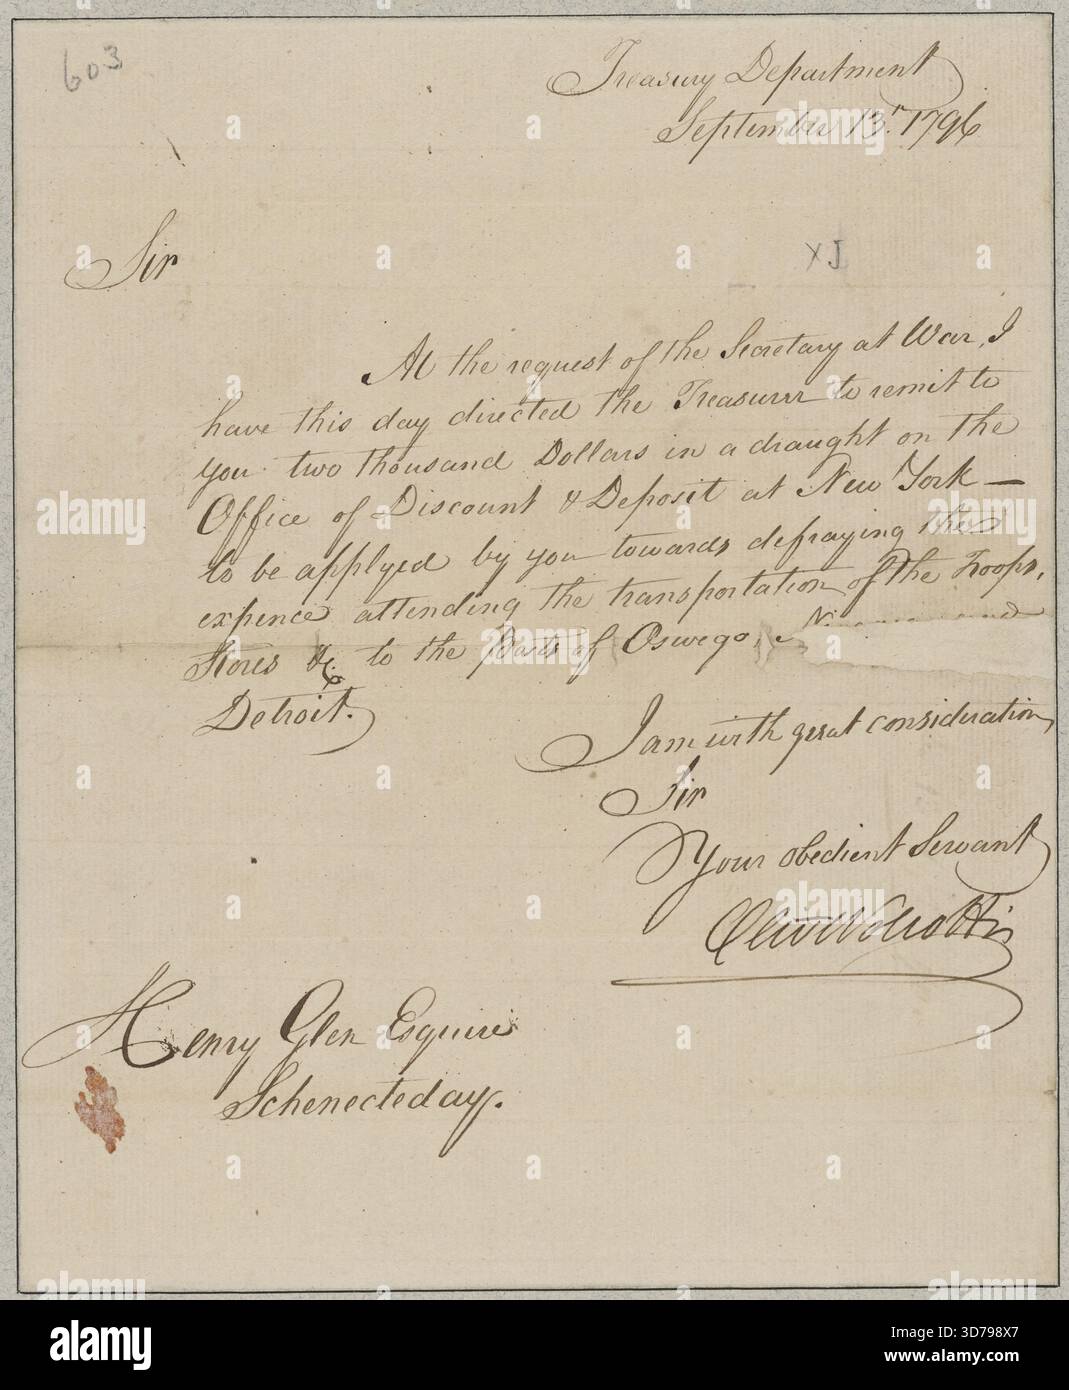 603
Treasury Department
September 13th. 1796
XI
Sir
At the request of the Secretary at War, I
have this day directed the Treasurer to remit to
you two thousand Dollars in a draught on the
Office of Discount & Deposit at New York —
to be applyed by you towards defraying the
expence attending the transportation of the Troops,
Stores &c to the Posts of Oswego,
Detroit.
I am with great consideration
Sir
Your obedient Servant
Oliv Wolcott
Henry Glen Esquire
Schenectaday.
alamy
Image ID: 3D798X7
www.alamy.com